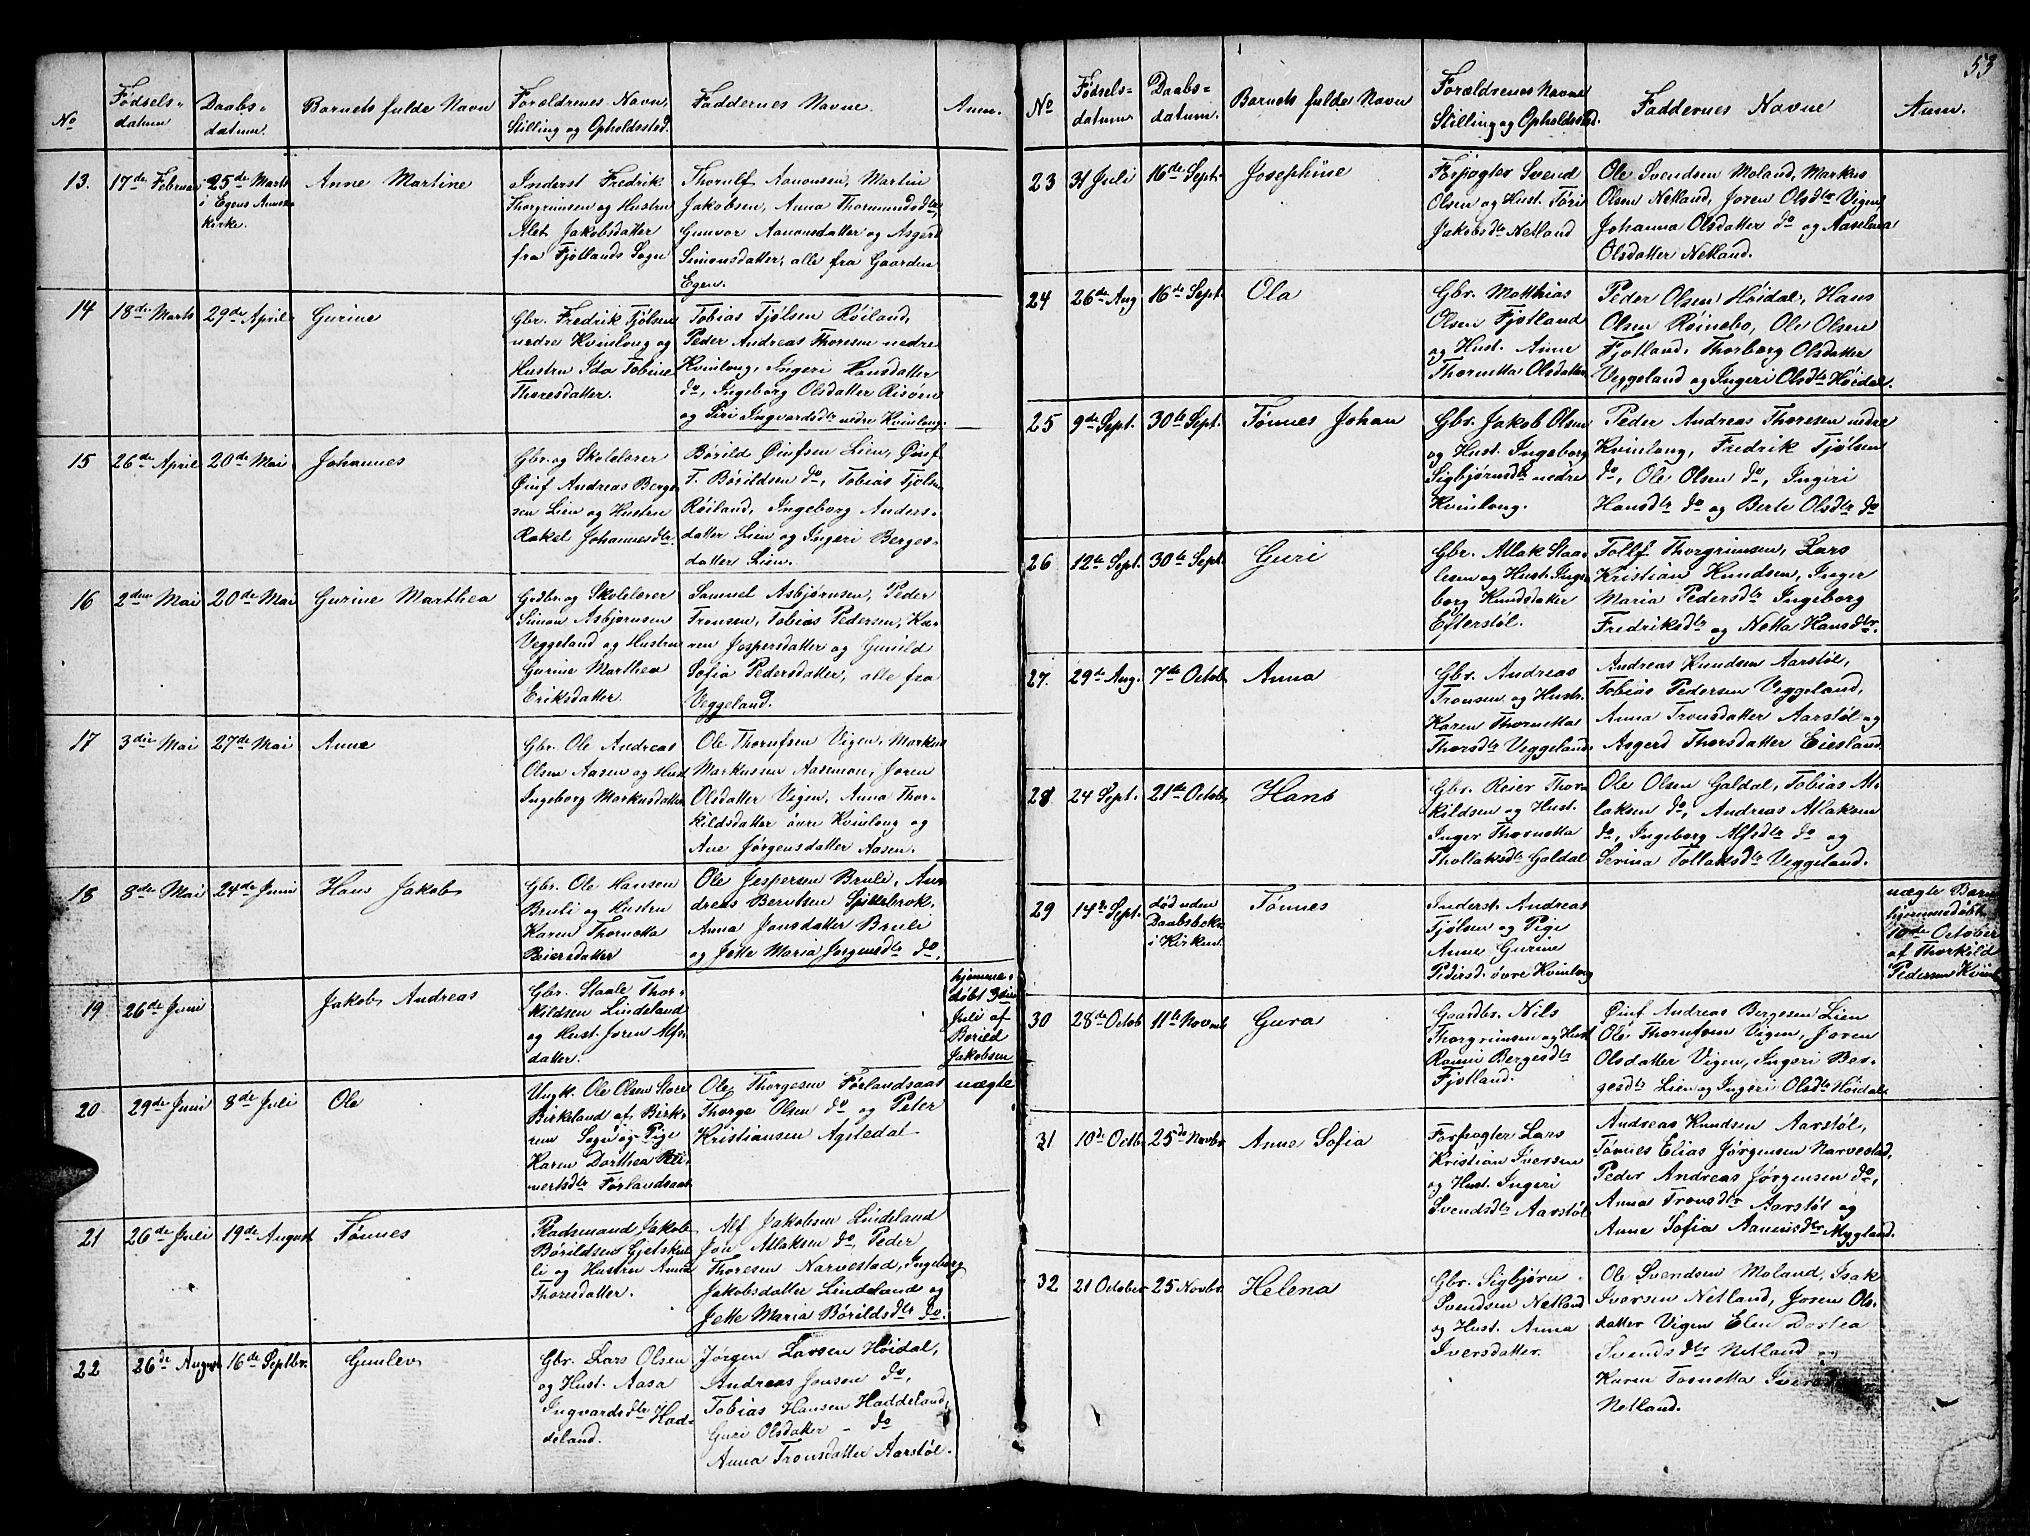 53
No Fødsels-datum Daabs-datum. Barnets fulde Navn Forældrenes Navn, Stilling og Opholdssted. Faddernes Navne. Anm.
13. 17de Februar 25de Marts i Egens Annex-kirke. Anne Martine
Inderst Fredrik
Thorgrimsen og Hustru
Alet Jakobsdatter
fra Fjotlands Sogn
Thorulf Aanonsen, Martin
Jakobsen, Anna Thormundsdtr,
Gunvor Aanonsdatter og Asgerd
Simonsdatter, alle fra Gaarden
Egen.
14 18de Marts 29de April Gurine
Gbr. Fredrik Tjølsen
nedre Kvinlong og
Hustru Ida Tobine
Thoresdatter.
Tobias Tjølsen Røiland,
Peder Andreas Thoresen nedre
Kvinlong, Ingeri Hansdatter
do, Ingeborg Olsdatter Risøen
og Siri Ingvardsdtr nedre Kvinlong.
15 26de April 20de Mai Johannes
Gbr. og Skolelærer
Øinf Andreas Berge-
sen Lien og Hustru
Rakel Johannesdtr
Børild Øinfsen Lien, Øinf
T. Børildsen do, Tobias Tjølsen
Røiland, Ingeborg Anders-
datter Lien og Ingeri Berges-
datter Lien.
16 2den Mai 20de Mai Gurine Marthea
Grdbr. og Skolelærer
Simon Asbjørnsen
Veggeland og Hustru
Gurine Marthea
Eriksdatter.
Samuel Asbjørnsen, Peder
Tronsen, Tobias Pedersen, Ka-
ren Jespersdatter og Gunild
Sofia Pedersdatter, alle fra
Veggeland.
17 3die Mai 27de Mai Anne
Gbr. Ole Andreas
Olsen Aasen og Hust
Ingeborg Markusdatter
Ole Thorufsen Vigen, Markus
Markussen Aasemon, Joren
Olsdatter Vigen, Anna Thor-
kildsdatter øvre Kvinlong og
Ane Jørgensdatter Aasen.
18 8de Mai 24de Juni Hans Jakob
Gbr. Ole Hansen
Bruli og Hustru
Karen Thornetta
Reiersdatter
Ole Jespersen Bruli, An-
dreas Berntsen Spikkebrok,
Anna Jonsdatter Bruli
og Jette Maria Jørgensdtr do.
19 26de Juni Jakob Andreas
Gbr. Staale Thor-
kildsen Lindeland
og Hust. Joren Alfs-
datter.
hjemme-
døbt 3die
Juli af
Børild
Jakobsen
20 29de Juni 8de Juli Ole
Ungk. Ole Olsen Store
Birkeland af Birk-
rem Sogn og Pige
Karen Dorthea
Førlandsaas
Ole Thorgesen Førlandsaas
Thorge Olsen do og Peter
Kristiansen Agsledal
uægte
21 26de Juli 19de August Tønnes
Raadsmand Jakob
Børildsen Gjetskue
li og Hustru Anna
Thoresdatter.
Alf Jakobsen Lindeland
Jon Atlaksen do, Peder
Thoresen Narvestad, Ingeborg
Jakobsdatter Lindeland og
Jette Maria Børildsdtr do.
22 26de August 16de Septbr. Gunlev
Gbr. Lars Olsen
og Hust. Aasa
Ingvardsdtr Had-
deland.
Jørgen Larsen Høidal,
Andreas Jonsen do,
Tobias Hansen Haddeland,
Guri Olsdatter - do
Anna Tronsdatter Aarstøl.
No Fødsels-datum Daabs-datum. Barnets fulde Navn Forældrenes Navne Stilling og Opholdssted. Faddernes Navne Anm.
23 31 Juli 16de Sept. Josephine
Forpagter Svend
Olsen og Hust. Tøri
Jakobsdtr Netland
Ole Svendsen Moland, Markus
Olsen Netland, Joren Olsdtr Vigen,
Johanna Olsdatter do og Aaselena
Olsdatter Netland.
24 26de Aug 16de Sept. Ola
Gbr. Matthias
Olsen Fjotland
og Hust. Anne
Thornetta Olsdatter
Peder Olsen Høidal, Hans
Olsen Røinebo, Ole Olsen
Fjotland, Thorborg Olsdatter
Veggeland og Ingeri Olsdtr Høidal.
25 9de Sept. 30te Sept. Tønnes Johan
Gbr. Jakob Olsen
og Hust. Ingeborg
Sigbjørnsdtr nedre
Kvinlong.
Peder Andreas Thoresen nedre
Kvinlong, Fredrik Tjølsen
do, Ole Olsen do, Ingeri
Hansdtr do og Berte Olsdtr do
26 12te Sept. 30te Sept Guri
Gbr. Atlak Staa-
lesen og Hust. Inge-
borg Knudsdatter
Efterstøl.
Tollf Thorgrimsen, Lars
Kristian Knudsen, Inger
Maria Pedersdtr Ingeborg
Fredriksdtr og Netta Hansdtr.
27. 29de Aug. 7de Octob Anna
Gbr. Andreas
Tronsen og Hustr.
Karen Thornetta
Thorsdtr Veggeland.
Andreas Knudsen Aarstøl,
Tobias Pedersen Veggeland,
Anna Tronsdatter Aarstøl og
Asgerd Thorsdatter Eiesland.
28 24 Sept. 21de Octob. Hans
Gbr. Reier Thor-
kildsen og Hust.
Inger Thornetta
Thollaksdtr Galdal
Ole Olsen Galdal, Tobias At-
laksen do, Andreas Atlaksen
do, Ingeborg Alfsdtr do og
Serina Tollaksdtr Veggeland.
29 14de Sept. død uden Daabsbekr. i Kirken. Tønnes
Inderst. Andreas
Tjølsen og Pige
Anne Gurine
Pedersd. øvre Kvinlong
uægte Barn
hjemmedøbt
10de October
af Thorkild
Pedersen Kvinl
30 28de Octob 11te Novmb Gura
Gaardbr. Nils
Thorgrimsen og Hust
Rønni Bergesdtr
Fjotland.
Øinf Andreas Bergesen Lien
Ole Thorufsen Vigen, Joren
Olsdatter Vigen, Ingeri Ber-
gesdtr Lien og Ingeri Olsdtr Høidal.
31 10de Octb. 25de Novbr. Anne Sofia
Forpagter Lars
Kristian Iversen
og Hust. Ingeri
Svendsdtr Aarstøl
Andreas Knudsen Aarstøl,
Tønnes Elias Jørgensen Narvestad,
Peder Andreas Jørgensen do,
Anna Tronsdtr Aarstøl og
Anne Sofia Aanensdtr Mygland.
32 21 October 25 Novbr. Helena
Gbr. Sigbjørn
Svendsen Netland
og Hust. Anna
Iversdatter.
Ole Svendsen Moland, Isak
Iversen Netland, Joren Ols-
datter Vigen Elen Dortea
Svendsdtr Netland og
Karen Tornetta
Netland.